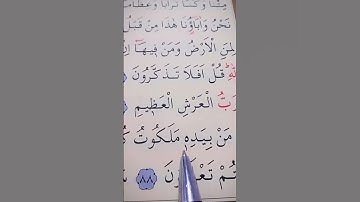 مِتْنَا وَكُنَّا تُرَابًا وَعِظَامًا
نَحْنُ وَاٰبَآؤُنَا هٰذَا مِنْ قَبْلُ
لِمَنِ الْاَرْضُ وَمَنْ فِيْهَآ
قُلْ اَفَلَا تَذَكَّرُوْنَ
رَبُّ الْعَرْشِ الْعَظِيْمِ
مَنْ بِيَدِهٖ مَلَكُوْتُ
٨٨